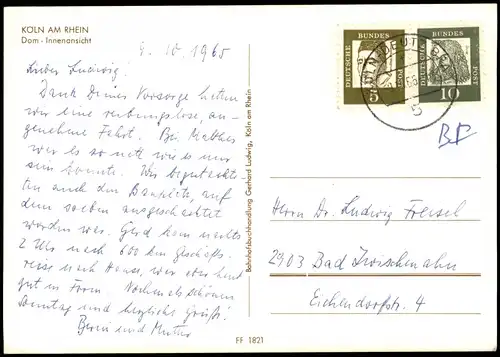 KÖLN AM RHEIN
Dom - Innenansicht
9. 10. 1965
Lieber Ludwig!
Dank Deiner Vorsorge hatten
wir eine reibungslose, an-
genehme Fahrt. Bei
war es so nett, wie es nur
sein konnte. Wir begutachte-
ten auch den Bauplatz, auf
dem soeben ausgeschachtet
worden war. Gerd kam nachts
2 Uhr nach 600 km Geschäfts-
reise nach Hause, war aber heut
gut in Form. Nochmals schönen
Sonntag und herzliche Grüße!
und Mutter
Bahnhofsbuchhandlung Gerhard Ludwig, Köln am Rhein
FF 1821
DEUTSCHE BUNDESPOST
5
DEUTSCHE BUNDESPOST
10
Herrn Dr. Ludwig
2903 Bad Zwischenahn
Eichendorffstr. 4